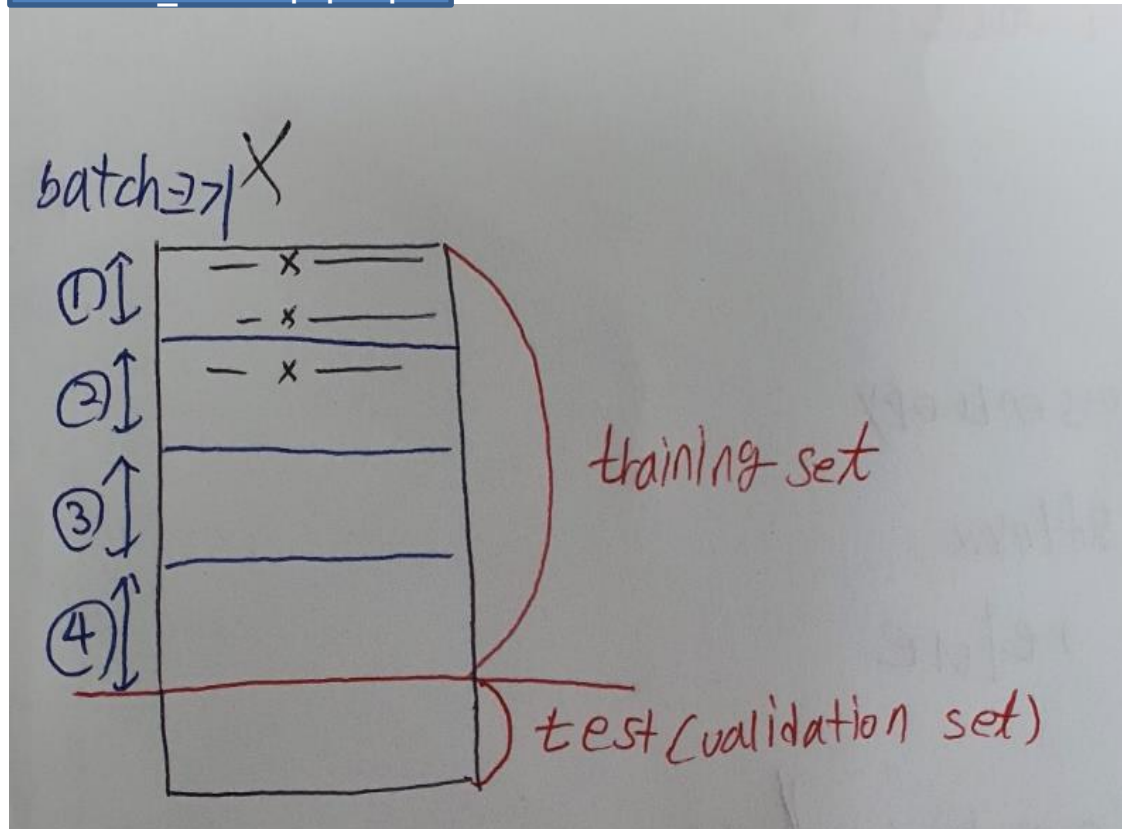 X
batch
①
— x —
— x —
②
— x —
③
training set
④
test (validation set)